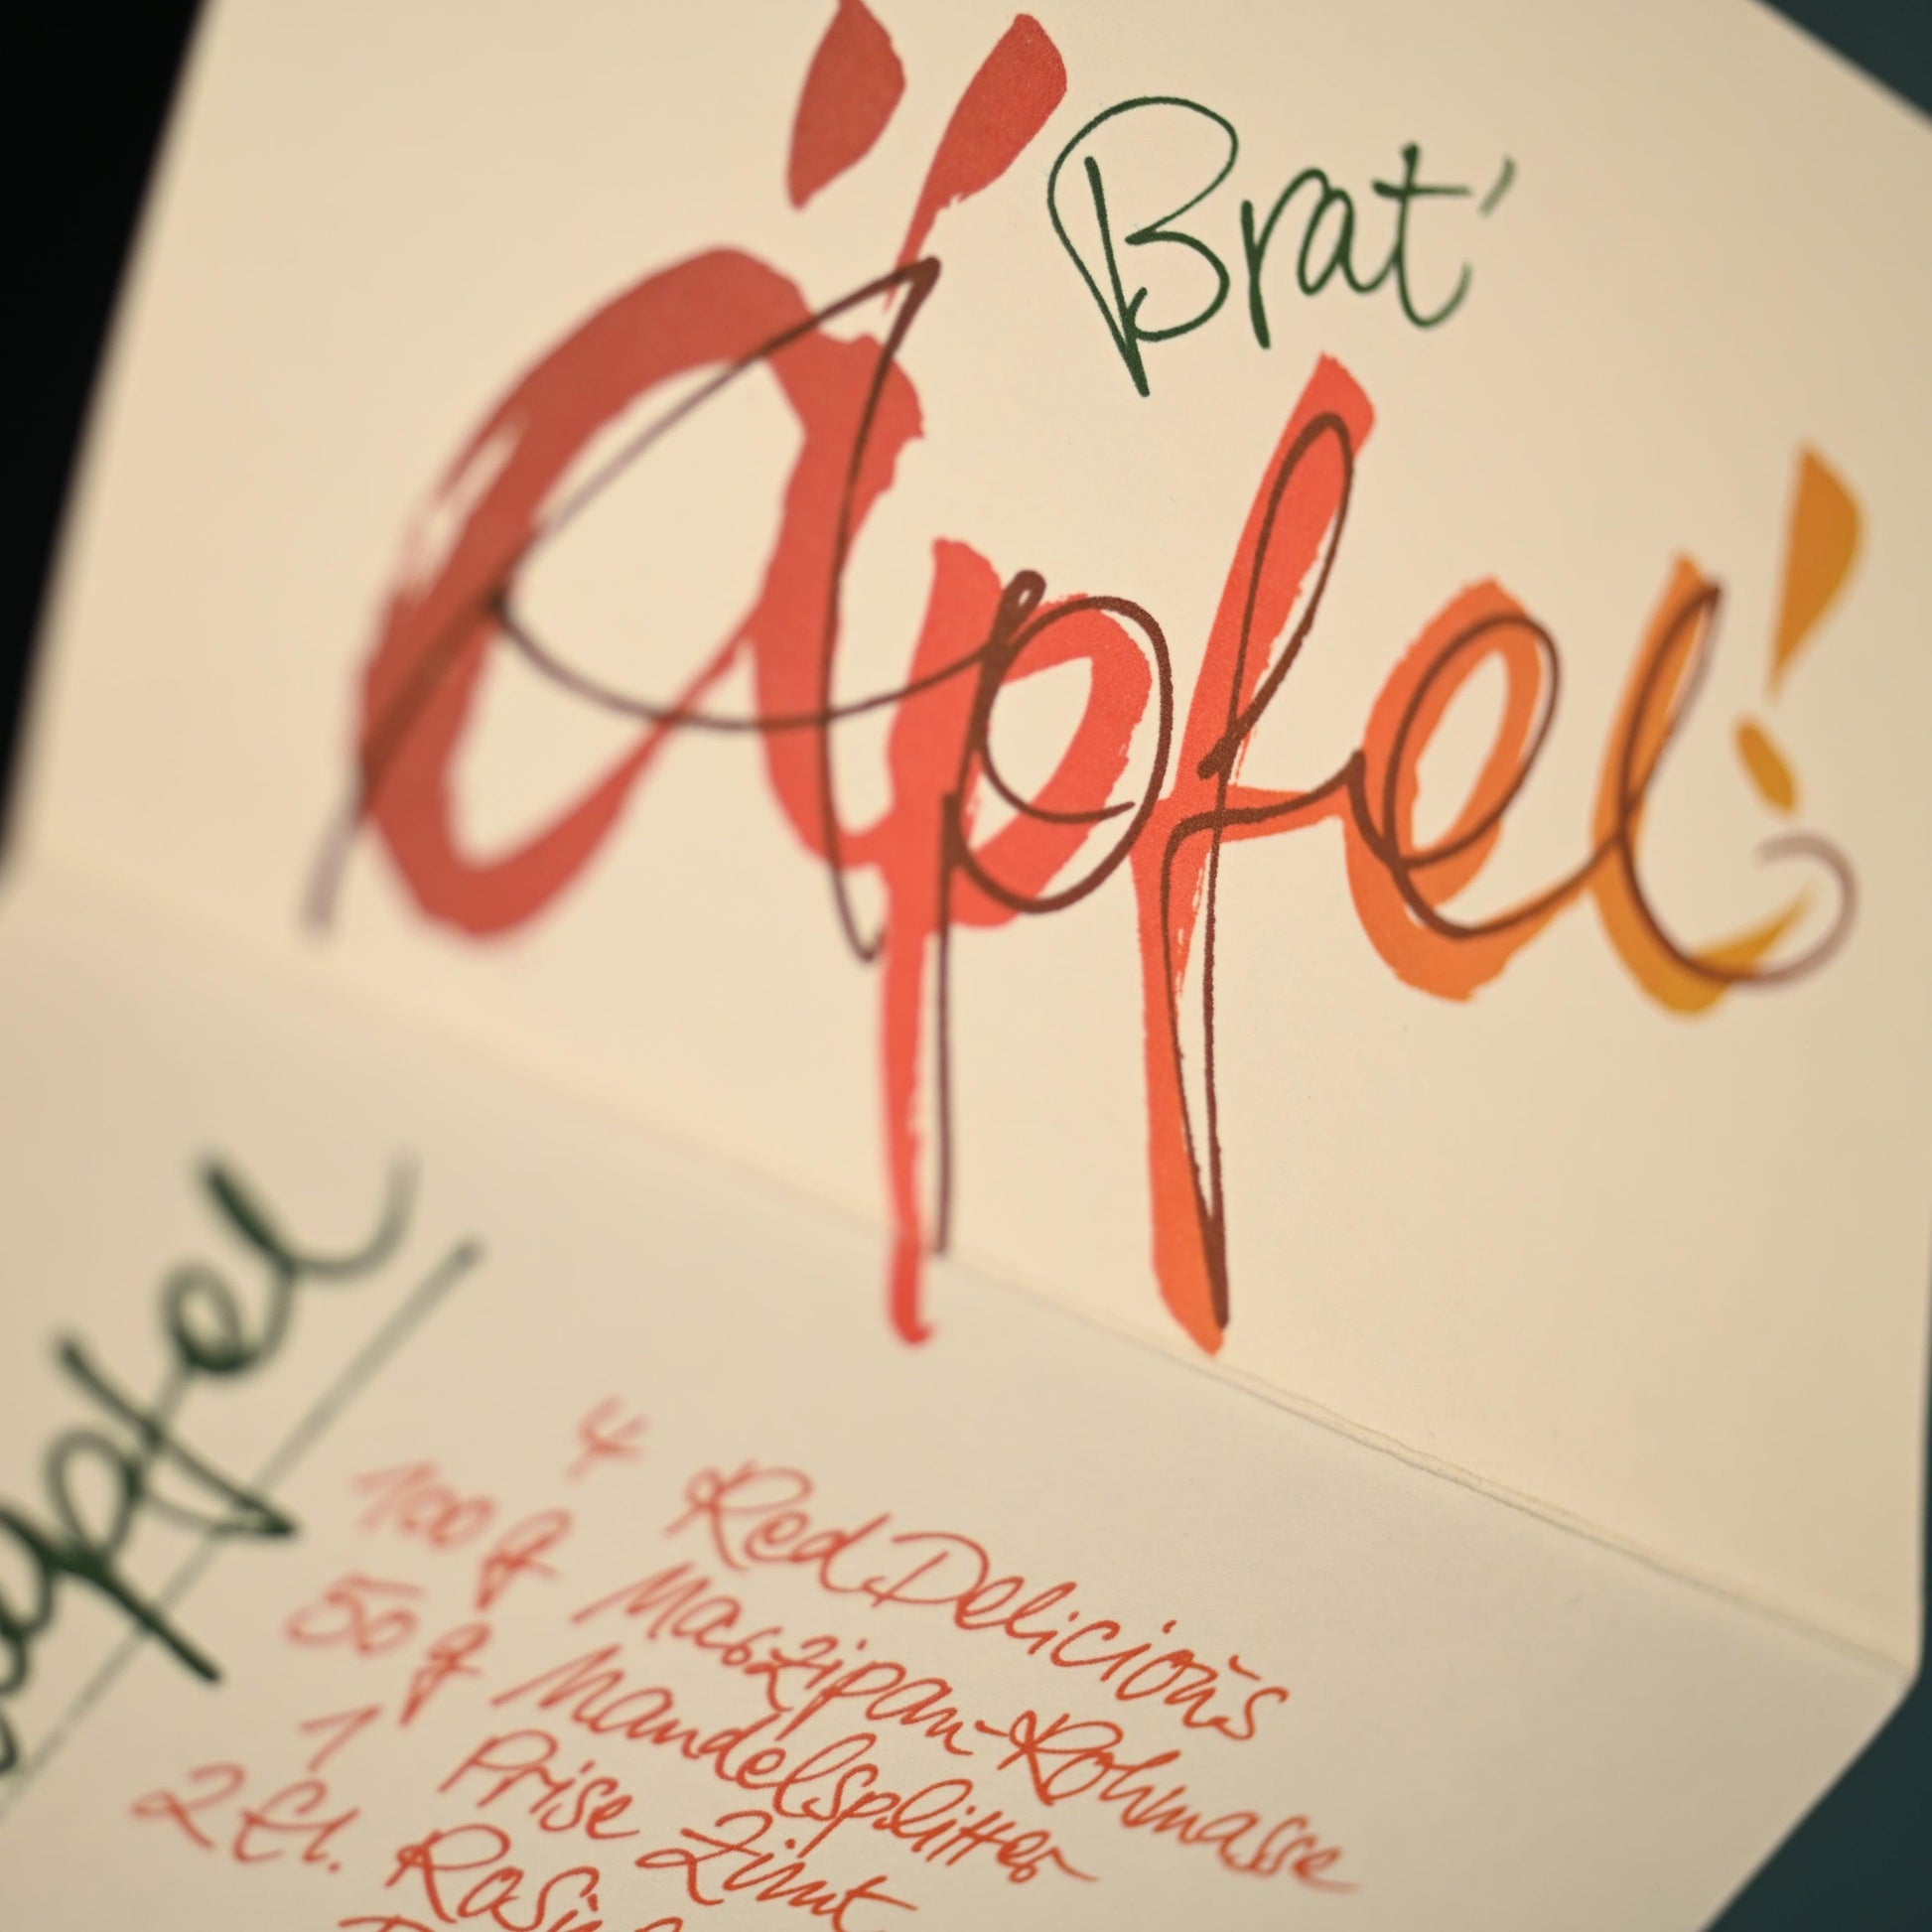 Brat'
Äpfel!
apfel
4 Red Delicious
100 g Marzipan-Rohmasse
50 g Mandelsplitter
1 Prise Zimt
2 El.